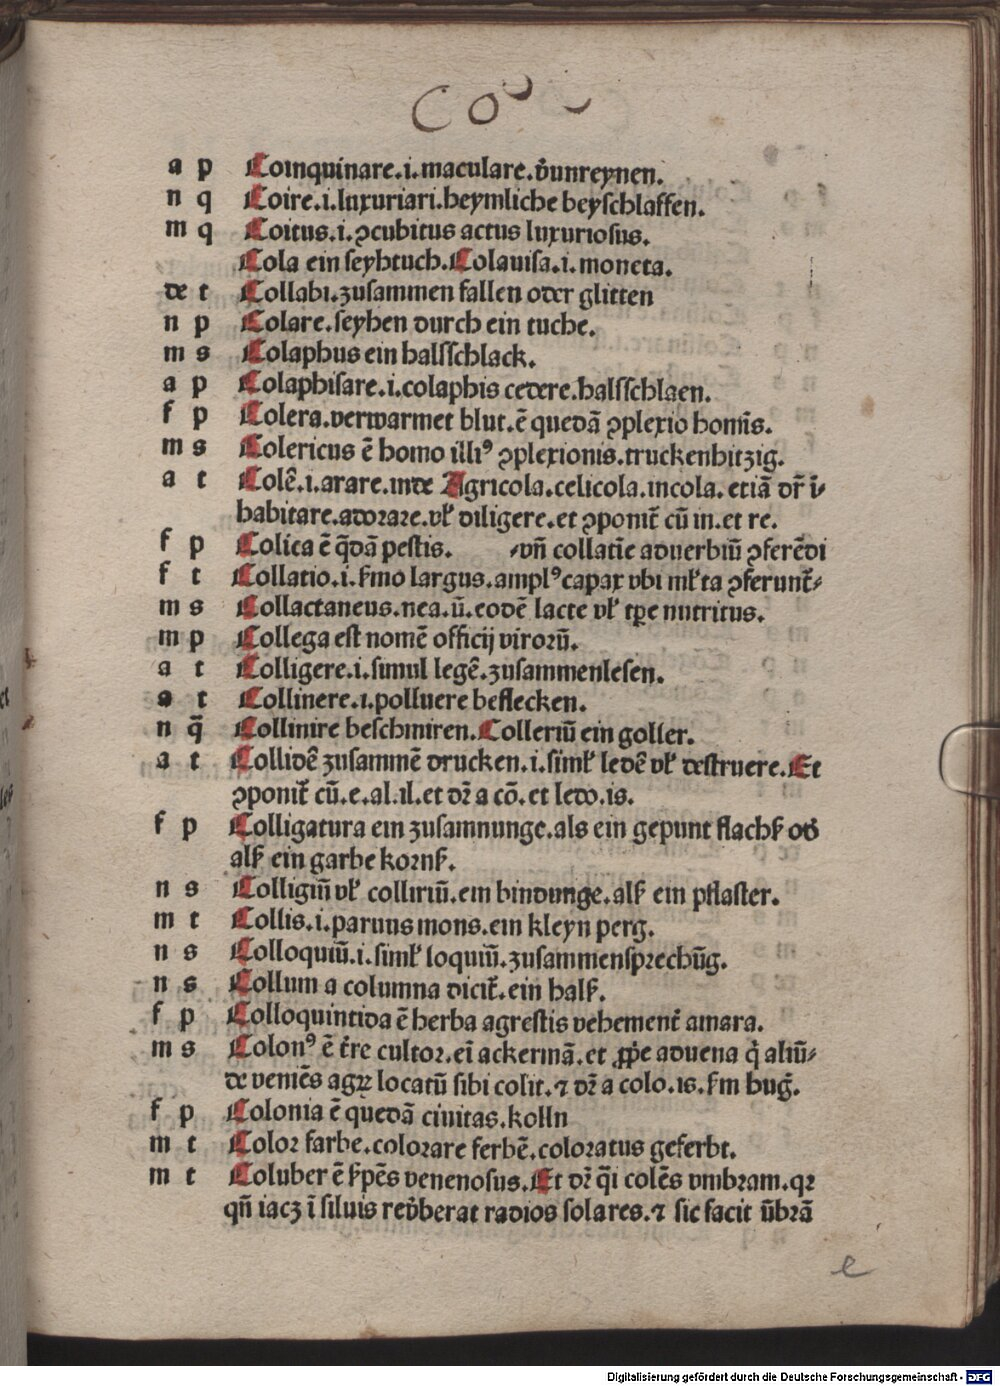 Co
a p Coinquinare.i.maculare.v̄unreynen.
n q Coire.i.luxuriari.heymliche beyſchlaffen.
m q Coitus.i.ꝯcubitus actus luxurioſus.
Cola ein ſeyhtuch.Colauiſa.i.moneta.
de t Collabi.zuſammen fallen oder glitten
n p Colare.ſeyhen durch ein tuche.
m s Colaphus ein halſſchlack.
a p Colaphiſare.i.colaphis cedere.halſſchlaen.
f p Colera.verwarmet blut.ē quedā ꝯplexio homīs.
m s Colericus ē homo illiꝰ ꝯplexionis.truckenhitzig.
a t Colē.i.arare.inde Agricola.celicola.incola.etiā dr̄ i-
habitare.adorare.vl̛ diligere.et ꝯponit̄ cū in.et re.
f p Colica ē q̄dā peſtis. -vn̄ collatīe aduerbiū ꝯferēdi
f t Collatio.i.ẜmo largus.amplꝰcapax vbi ml̛ta ꝯferunt̄-
m s Collactaneus.nea.ū.eodē lacte vl̛ tꝑe nutritus.
m p Collega eſt nomē officij virorū.
a t Colligere.i.ſimul legē.zuſammenleſen.
a t Collinere.i.polluere beflecken.
n q̄ Collinire beſchmiren.Colleriū ein goller.
a t Collidē zuſammē drucken.i.ſiml̛ ledē vl̛ deſtruere.Et
ꝯponit̄ cū.e.al.il.et dr̄ a cō.et ledo.is.
f p Colligatura ein zuſamnunge.als ein gepunt flachſ̛ od̛
alſ̛ ein garbe kornſ̛.
n s Colligiū vl̛ colliriū.ein bindunge.alſ̛ ein pflaſter.
m t Collis.i.paruus mons.ein kleyn perg.
n s Colloquiū.i.ſiml̛ loquiū.zuſammenſprechūg.
n s Collum a columna dicit̄.ein halſ̛.
f p Colloquintida ē herba agreſtis vehement̄ amara.
m s Colonꝰ ē t̄re cultor.ei ackermā.et ꝓpͤ aduena q̄ aliū-
de veniēs agꝝ locatū ſibi colit.⁊ dr̄ a colo.is.ẜm hug̛.
f p Colonia ē quedā ciuitas.kolln
m t Color farbe.colorare ferbē.coloratus geferbt.
m t Coluber ē ẜpēs venenoſus.Et dr̄ q̄i colēs vmbram.qꝛ
qn̄ iacꝫ ī ſiluis rev̛berat radios ſolares.⁊ ſic facit v̄brā
e
Digitalisierung gefördert durch die Deutsche Forschungsgemeinschaft - DFG